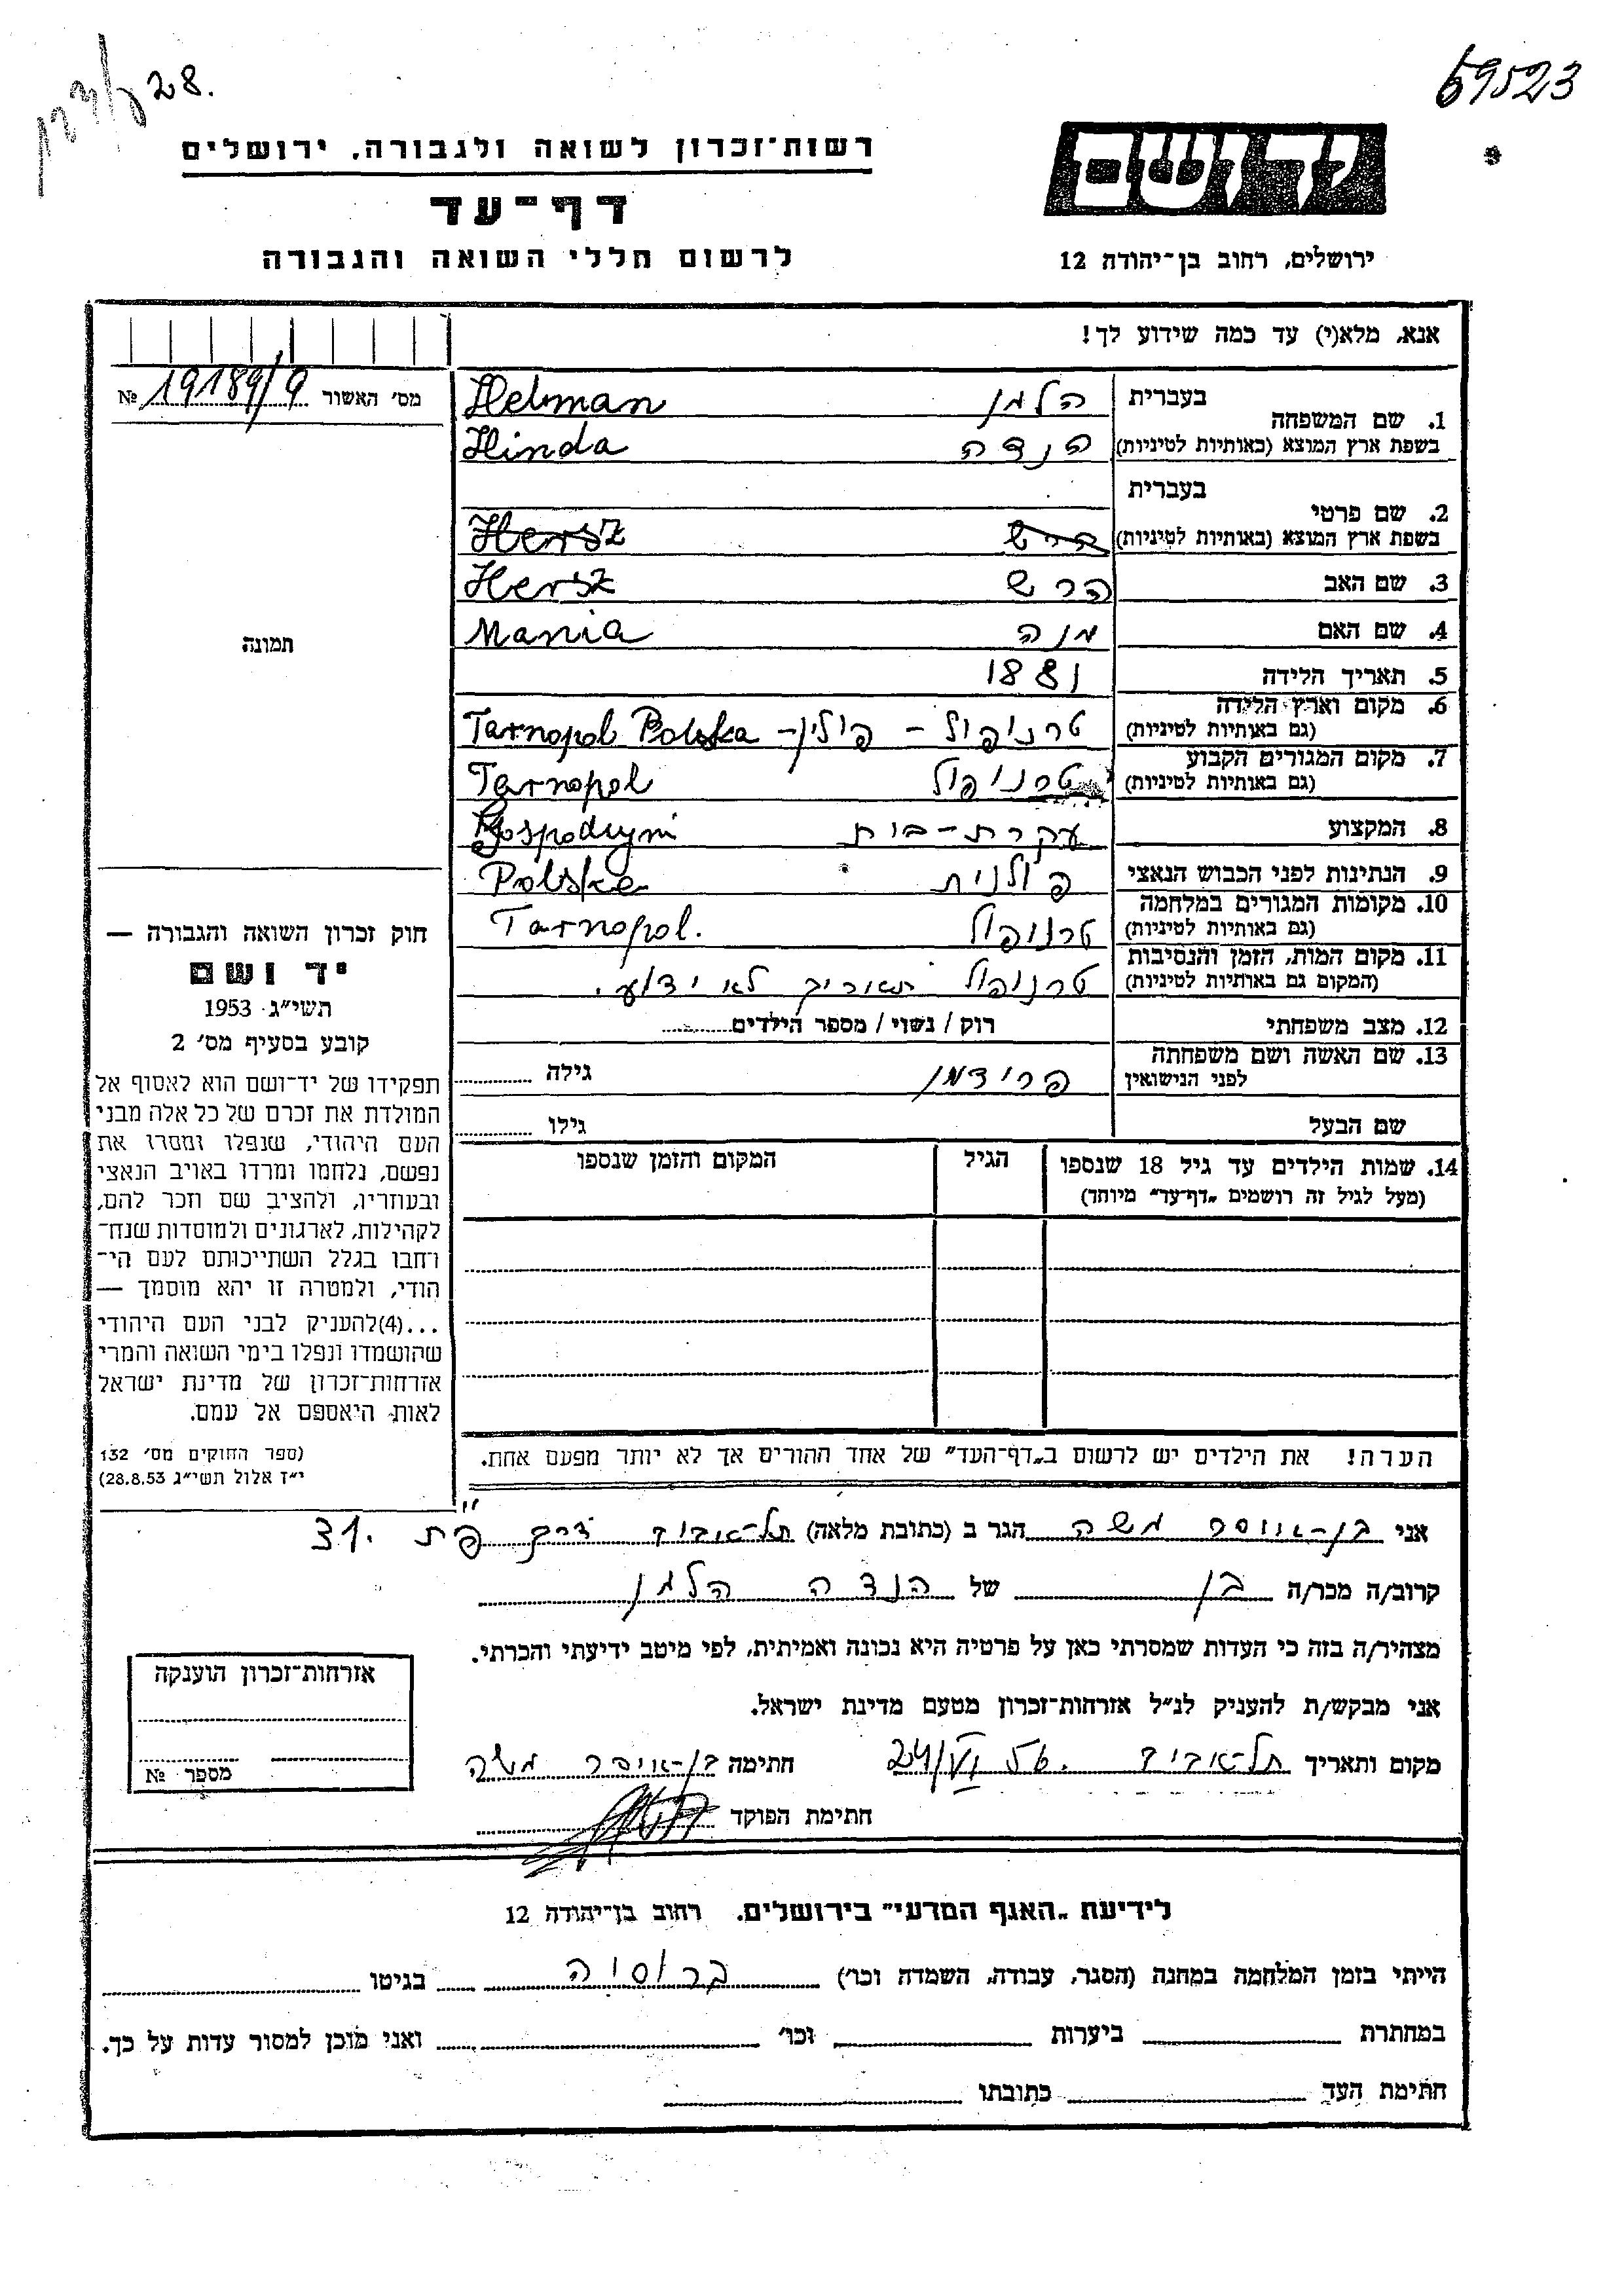 28.
69523
רשות־זכרון לשואה ולגבורה. ירושלים
דף־עד
לרשום חללי השואה והגבורה
ידושם
ירושלים, רחוב בן־יהודה 12
אנא, מלא(י) עד כמה שידוע לך!
מס׳ האשור 19189/9 №
תמונה
חוק זכרון השואה והגבורה —
יד ושם
תשי״ג 1953
קובע בסעיף מס׳ 2
תפקידו של יד־ושם הוא לאסוף אל
המולדת את זכרם של כל אלה מבני
העם היהודי, שנפלו ומסרו את
נפשם, נלחמו ומרדו באויב הנאצי
ובעוזריו, ולהציב שם וזכר להם,
לקהילות, לארגונים ולמוסדות שנח־
רחבו בגלל השתייכותם לעם הי־
הודי, ולמטרה זו יהא מוסמך —
...(4)להעניק לבני העם היהודי
שהושמדו ונפלו בימי השואה והמרי
אזרחות־זכרון של מדינת ישראל
לאות היאספם אל עמם.
(ספר החוקים מס׳ 132
י״ז אלול תשי״ג 28.8.53)
בעברית הלמן Helman
1. שם המשפחה
בשפת ארץ המוצא (באותיות לטיניות) הנדה Hinda
בעברית
2. שם פרטי
בשפת ארץ המוצא (באותיות לטיניות) הירש Hersz
3. שם האב הרש Hersz
4. שם האם מנה Mania
5. תאריך הלידה 1881
6. מקום וארץ הלידה
(גם באותיות לטיניות) טרנופול – פולין – Tarnopol Polska
7. מקום המגורים הקבוע
(גם באותיות לטיניות) טרנופול Tarnopol
8. המקצוע עקרת-בית Gospodyni
9. הנתינות לפני הכבוש הנאצי פולנית Polska
10. מקומות המגורים במלחמה
(גם באותיות לטיניות) טרנופול Tarnopol.
11. מקום המות, הזמן והנסיבות
(המקום גם באותיות לטיניות) טרנופול תאריך לא ידוע.
12. מצב משפחתי רוק / נשוי / מספר הילדים
13. שם האשה ושם משפחתה
לפני הנישואין פרידמן גילה
שם הבעל גילו
14. שמות הילדים עד גיל 18 שנספו הגיל המקום והזמן שנספו
(מעל לגיל זה רושמים „דף־עד״ מיוחד)
הערה! את הילדים יש לרשום ב„דף־העד״ של אחד ההורים אך לא יותר מפעם אחת.
אני בן-אוסר משה הגר ב (כתובת מלאה) תל-אביב דרך פ״ת 31.
קרוב/ה מכר/ה בן של הנדה הלמן
מצהיר/ה בזה כי העדות שמסרתי כאן על פרטיה היא נכונה ואמיתית, לפי מיטב ידיעתי והכרתי.
אני מבקש/ת להעניק לנ״ל אזרחות־זכרון מטעם מדינת ישראל.
מקום ותאריך תל-אביב 24/VI 56. חתימה בן-אוסר משה
חתימת הפוקד
אזרחות־זכרון הוענקה
מספר №
לידיעת „האגף המדעי״ בירושלים. רחוב בן־יהודה 12
הייתי בזמן המלחמה במחנה (הסגר, עבודה, השמדה וכו׳) ברוסיה בגיטו
במחתרת ביערות וכו׳ ואני מוכן למסור עדות על כך.
חתימת העד כתובתו